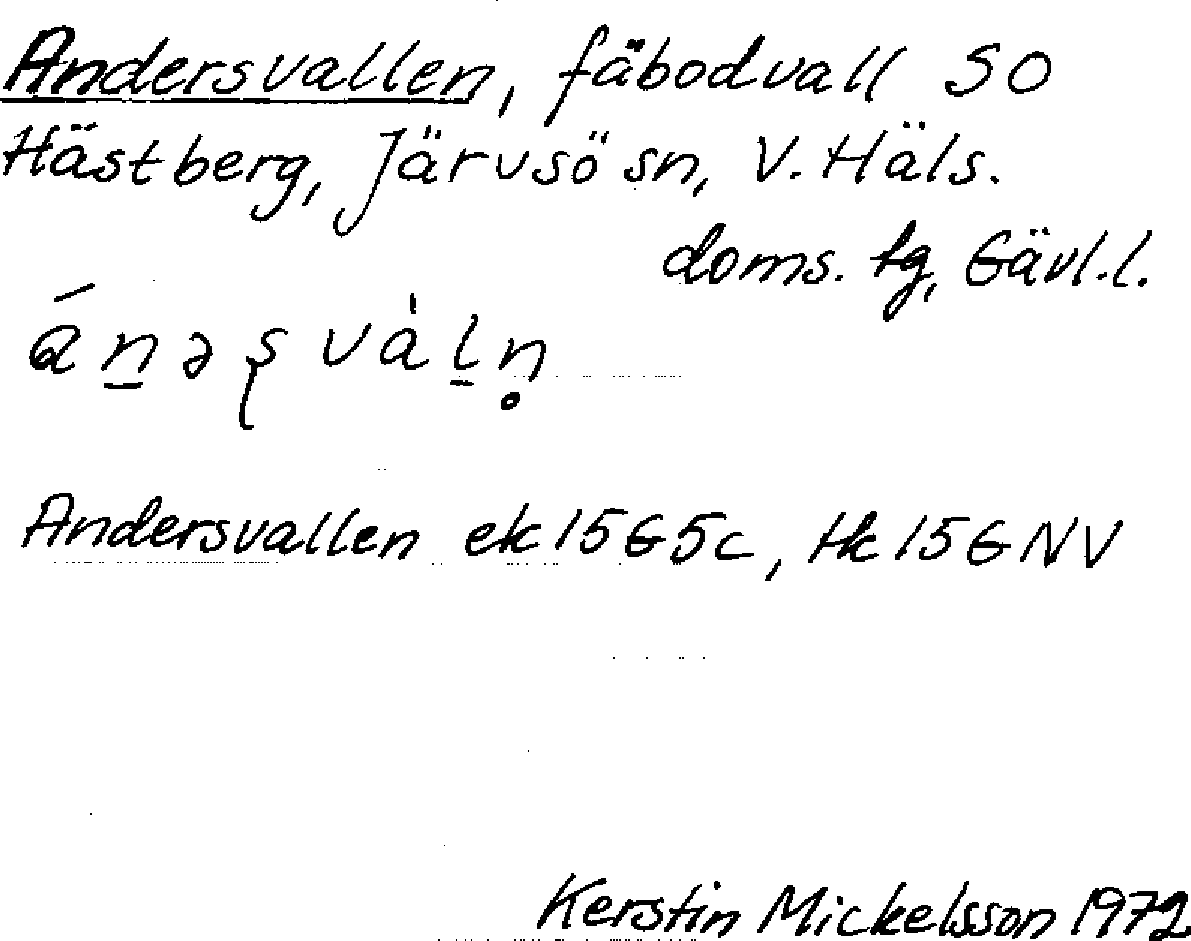 Andersvallen, fäbodvall SO
Hästberg, Järvsö sn, V. Häls.
doms. tg, Gävl.l.
án̠əʂvàl̠n̥
Andersvallen ek 15G5c, Hk 15GNV
Kerstin Mickelsson 1972